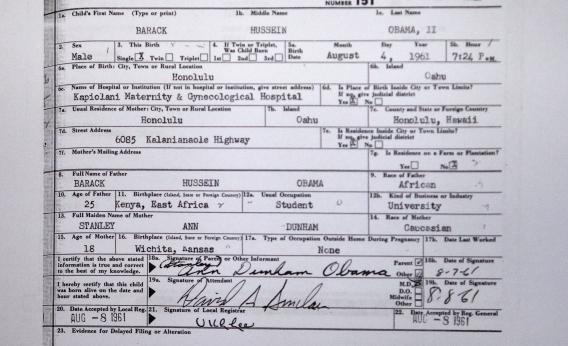 NUMBER 151
1a. Child's First Name (Type or print) 1b. Middle Name 1c. Last Name
BARACK HUSSEIN OBAMA, II
2. Sex 3. This Birth 4. If Twin or Triplet, Was Child Born 5a. Birth Date Month Day Year 5b. Hour
Male Single Twin Triplet 1st 2nd 3rd August 4, 1961 7:24 P.M.
6a. Place of Birth: City, Town or Rural Location 6b. Island
Honolulu Oahu
6c. Name of Hospital or Institution (If not in hospital or institution, give street address) 6d. Is Place of Birth Inside City or Town Limits? If no, give judicial district
Kapiolani Maternity & Gynecological Hospital Yes No
7a. Usual Residence of Mother: City, Town or Rural Location 7b. Island 7c. County and State or Foreign Country
Honolulu Oahu Honolulu, Hawaii
7d. Street Address 7e. Is Residence Inside City or Town Limits? If no, give judicial district
6085 Kalanianaole Highway Yes No
7f. Mother's Mailing Address 7g. Is Residence on a Farm or Plantation?
Yes No
8. Full Name of Father 9. Race of Father
BARACK HUSSEIN OBAMA African
10. Age of Father 11. Birthplace (Island, State or Foreign Country) 12a. Usual Occupation 12b. Kind of Business or Industry
25 Kenya, East Africa Student University
13. Full Maiden Name of Mother 14. Race of Mother
STANLEY ANN DUNHAM Caucasian
15. Age of Mother 16. Birthplace (Island, State or Foreign Country) 17a. Type of Occupation Outside Home During Pregnancy 17b. Date Last Worked
18 Wichita, Kansas None
I certify that the above stated information is true and correct to the best of my knowledge. 18a. Signature of Parent or Other Informant Parent Other 18b. Date of Signature
(Stanley) Ann Dunham Obama 8-7-61
I hereby certify that this child was born alive on the date and hour stated above. 19a. Signature of Attendant M.D. D.O. Midwife Other 19b. Date of Signature
David A Sinclair 8-8-61
20. Date Accepted by Local Reg. 21. Signature of Local Registrar 22. Date Accepted by Reg. General
AUG -8 1961 U K L Lee AUG -8 1961
23. Evidence for Delayed Filing or Alteration